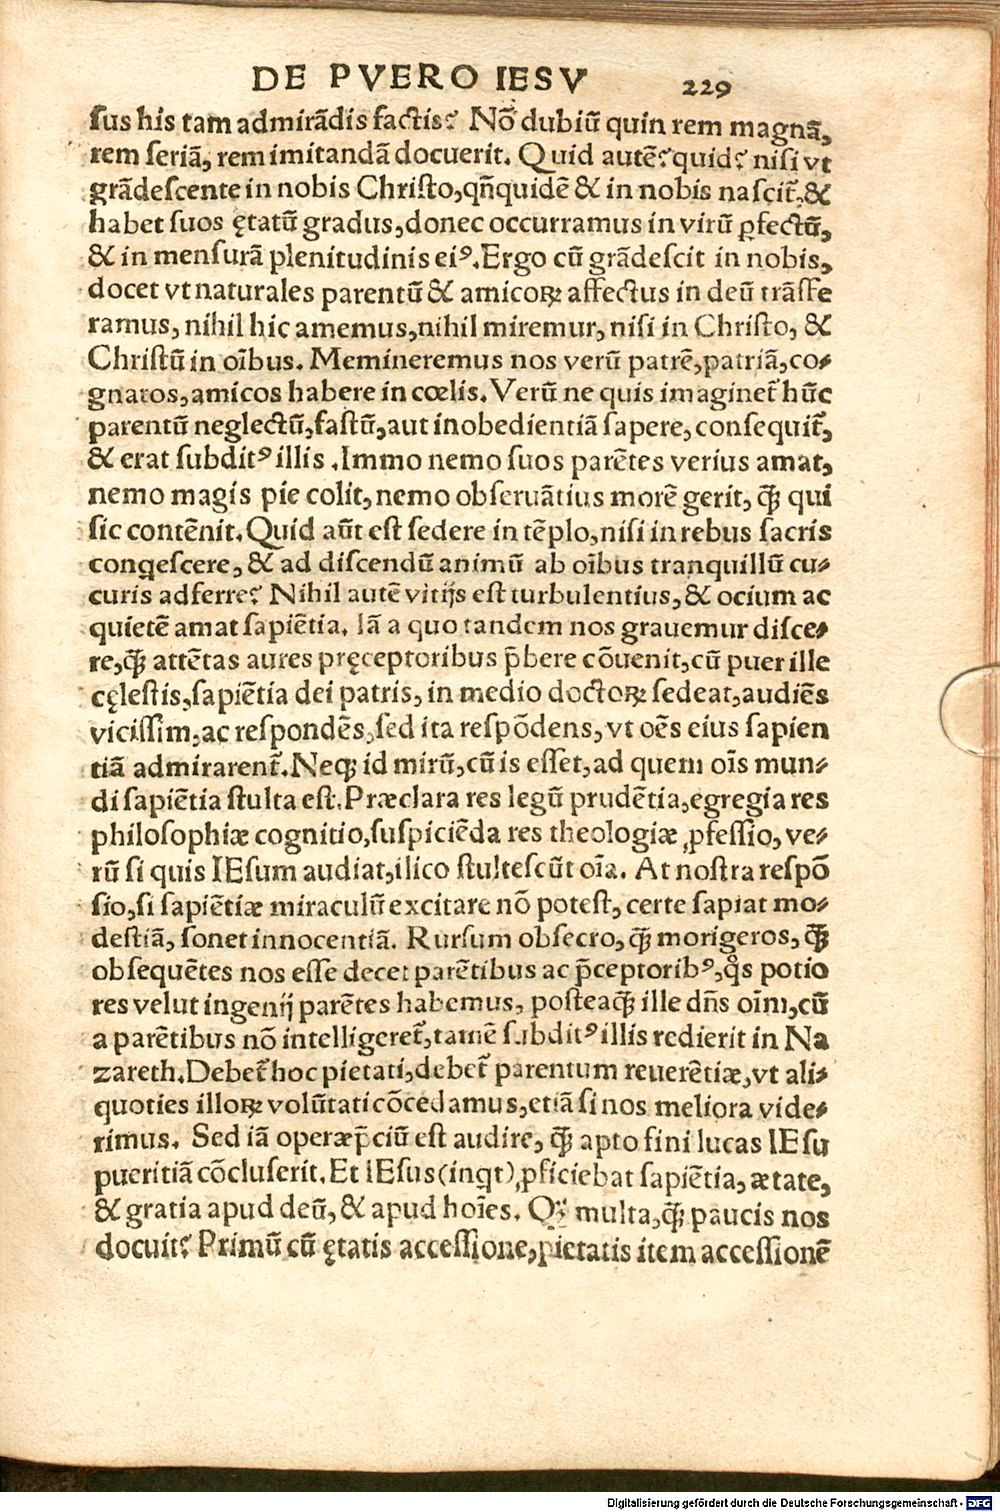 DE PVERO IESV 229
sus his tam admirãdis factis? Nõ dubiũ quin rem magnã,
rem seriã, rem imitandã docuerit. Quid autẽ? quid? nisi vt
grãdescente in nobis Christo, qñquidẽ & in nobis nascit᷑, &
habet suos ętatũ gradus, donec occurramus in virũ ꝑfectũ,
& in mensurã plenitudinis eiꝰ. Ergo cũ grãdescit in nobis,
docet vt naturales parentũ & amicoꝝ affectus in deũ trãsfe
ramus, nihil hic amemus, nihil miremur, nisi in Christo, &
Christũ in oĩbus. Memineremus nos verũ patrẽ, patriã, co-
gnatos, amicos habere in cœlis. Verũ ne quis imaginet᷑ hũc
parentũ neglectũ, fastũ, aut inobedientiã sapere, consequit᷑,
& erat subditꝰ illis. Immo nemo suos parẽtes verius amat,
nemo magis pie colit, nemo obseruãtius morẽ gerit, ꝙ̃ qui
sic contẽnit. Quid aũt est sedere in tẽplo, nisi in rebus sacris
conqescere, & ad discendũ animũ ab oĩbus tranquillũ cu-
curis adferre? Nihil autẽ vitijs est turbulentius, & ocium ac
quietẽ amat sapiẽtia. Iã a quo tandem nos grauemur disce-
re, ꝙ̃ attẽtas aures pręceptoribus p̃bere cõuenit, cũ puer ille
cęlestis, sapiẽtia dei patris, in medio doctoꝝ sedeat, audiẽs
vicissim, ac respondẽs, sed ita respõdens, vt oẽs eius sapien
tiã admirarent᷑. Neqꝫ id mirũ, cũ is esset, ad quem oĩs mun-
di sapiẽtia stulta est. Præclara res legũ prudẽtia, egregia res
philosophiæ cognitio, suspiciẽda res theologiæ ꝓfessio, ve-
rũ si quis IEsum audiat, ilico stultescũt oĩa. At nostra respõ
sio, si sapiẽtiæ miraculũ excitare nõ potest, certe sapiat mo-
destiã, sonet innocentiã. Rursum obsecro, ꝙ̃ morigeros, ꝙ̃
obsequẽtes nos esse decet parẽtibus ac p̃ceptoribꝰ, q̊s potio
res velut ingenij parẽtes habemus, posteaꝙ̃ ille dñs oĩm, cũ
a parẽtibus nõ intelligeret᷑, tamẽ subditꝰ illis redierit in Na
zareth. Debet᷑ hoc pietati, debet᷑ parentum reuerẽtiæ, vt ali-
quoties illoꝝ volũtati cõcedamus, etiã si nos meliora vide-
rimus. Sed iã operæp̃ciũ est audire, ꝙ̃ apto fini lucas IEsu
pueritiã cõcluserit. Et IEsus (inqt) ꝓficiebat sapiẽtia, ætate,
& gratia apud deũ, & apud hoĩes. Qꝫ̃ multa, ꝙ̃ paucis nos
docuit? Primũ cũ ętatis accessione, pietatis item accessionẽ
Digitalisierung gefördert durch die Deutsche Forschungsgemeinschaft - DFG